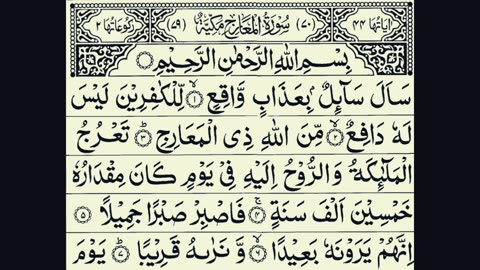 اٰيَاتُهَا ٤٤ (٧٠) سُوْرَةُ الْمَعَارِجِ مَكِّيَّةٌ (٧٩) رُكُوْعَاتُهَا ٢
بِسْمِ اللّٰهِ الرَّحْمٰنِ الرَّحِيْمِ
سَاَلَ سَآئِلٌۢ بِعَذَابٍ وَّاقِعٍ ۙ﴿۱﴾ لِّلْكٰفِرِيْنَ لَيْسَ
لَهٗ دَافِعٌ ۙ﴿۲﴾ مِّنَ اللّٰهِ ذِى الْمَعَارِجِ ؕ﴿۳﴾ تَعْرُجُ
الْمَلٰٓئِكَةُ وَالرُّوْحُ اِلَيْهِ فِىْ يَوْمٍ كَانَ مِقْدَارُهٗ
خَمْسِيْنَ اَلْفَ سَنَةٍ ۚ﴿۴﴾ فَاصْبِرْ صَبْرًا جَمِيْلًا ﴿۵﴾
اِنَّهُمْ يَرَوْنَهٗ بَعِيْدًا ۙ﴿۶﴾ وَّ نَرٰىهُ قَرِيْبًا ؕ﴿۷﴾ يَوْمَ